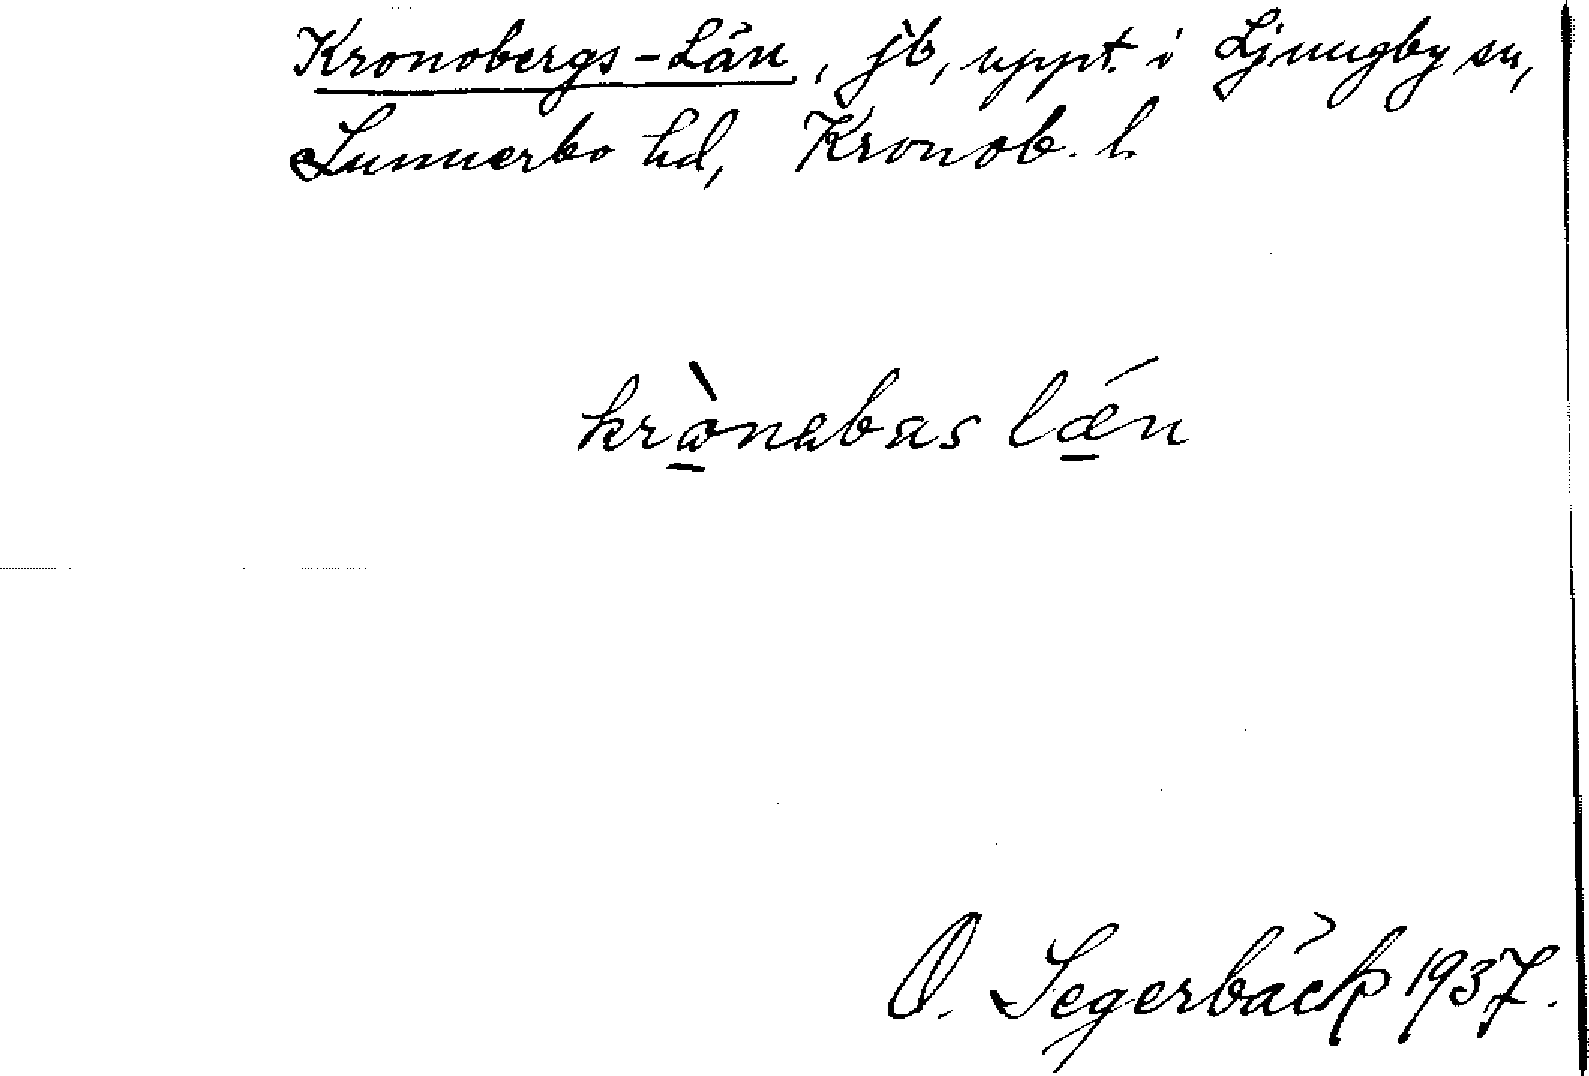 Kronobergs-Län, jb, uppt. i Ljungby sn,
Sunnerbo hd, Kronob. l.
krònabas lǽn
O. Segerbäck 1937.